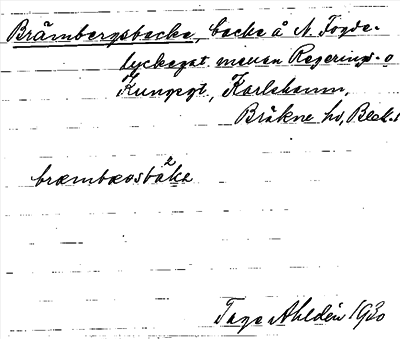 Brämbergsbacke, backe å N. Fogde-
lyckegat. mellan Regerings- o
Kungsgt, Karlshamn,
Bräkne hd, Blek.
bræmbæosbakə
Tage Ahldén 1930